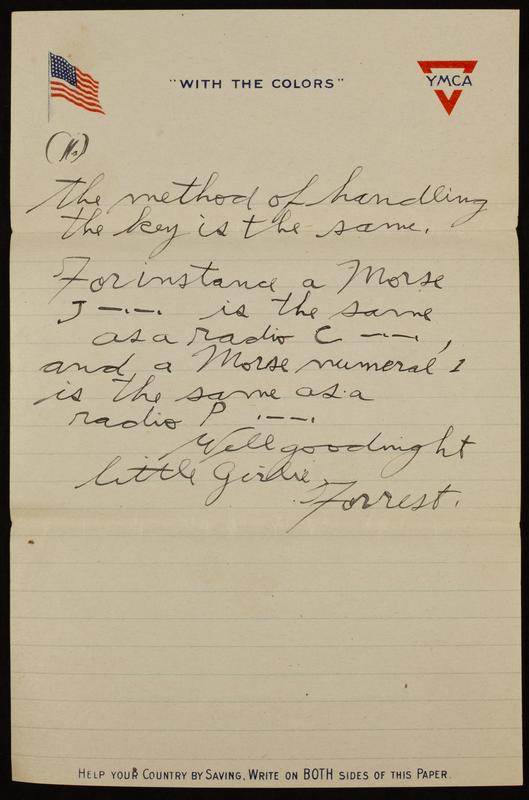 "WITH THE COLORS"
YMCA
the method of handling
the key is the same.
For instance a Morse
J –·–· is the same
as a radio C –·–·,
and a Morse numeral 1
is the same as a
radio P ·––·
Well goodnight
little Girlie.
Forrest.
HELP YOUR COUNTRY BY SAVING. WRITE ON BOTH SIDES OF THIS PAPER.